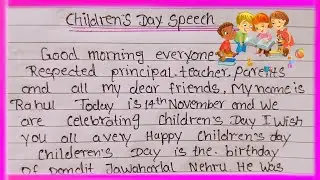 Children's Day Speech
Good morning everyone
Respected principal.teacher.parents
and all my dear friends. My name is
Rahul Today is 14th November and we
are celebrating Children's Day I wish
you all a very Happy Children's day
Childeren's Day is the birthday
of Pandit Jawaharlal Nehru. He was